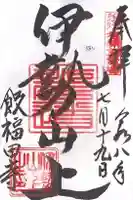 奉拝
令和八年
七月十九日
伊勢山上
飯福田寺